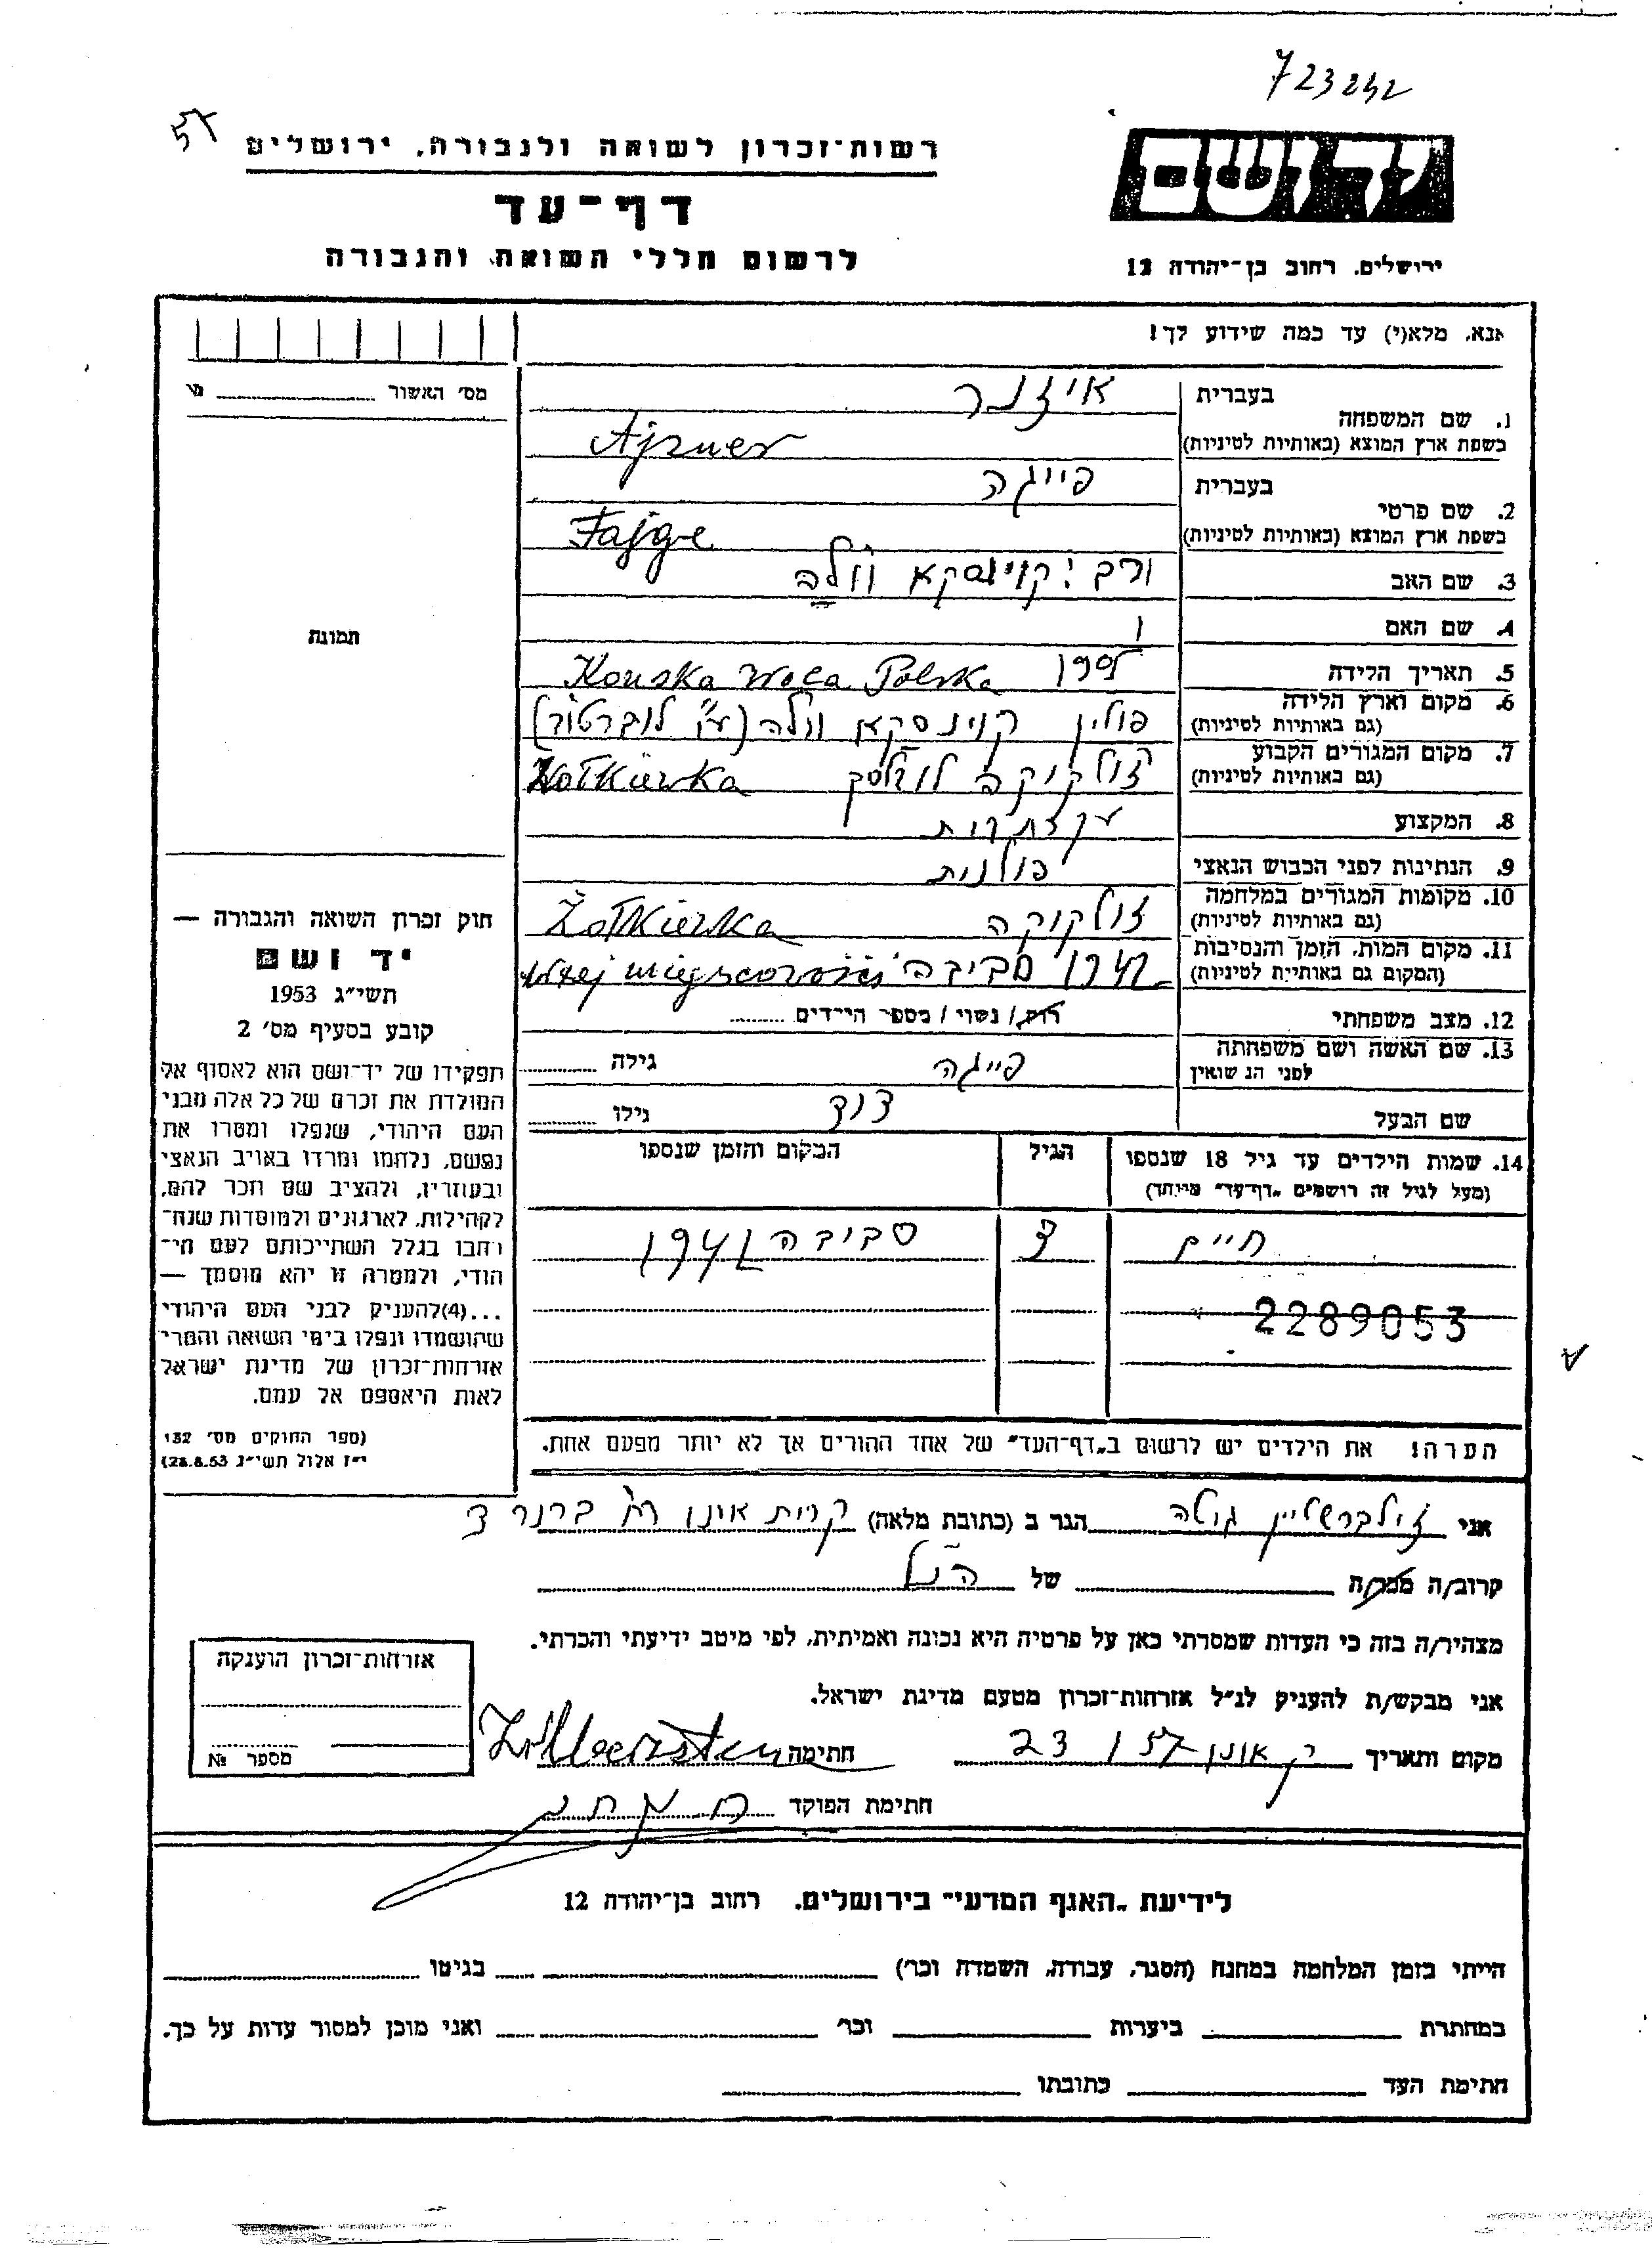 723242
רשות-זכרון לשואה ולגבורה, ירושלים
יד ושם
דף-עד
לרשום חללי השואה והגבורה
ירושלים, רחוב בן-יהודה 12
אנא, מלא(י) עד כמה שידוע לך!
מס' האשור
1. שם המשפחה
בעברית איזנר
בשפת ארץ המוצא (באותיות לטיניות) Ajzner
2. שם פרטי
בעברית פייגה
בשפת ארץ המוצא (באותיות לטיניות) Fajge
3. שם האב
4. שם האם
תמונה
5. תאריך הלידה Konska Wola Polska
6. מקום וארץ הלידה
(גם באותיות לטיניות) פולין קוינסקא וולה
7. מקום המגורים הקבוע
(גם באותיות לטיניות) זולקוקה Zołkiewka
8. המקצוע
9. הנתינות לפני הכבוש הנאצי פולנית
10. מקומות המגורים במלחמה
(גם באותיות לטיניות) זולקוקה Żołkiewka
11. מקום המות, הזמן והנסיבות
(המקום גם באותיות לטיניות) סביבה
12. מצב משפחתי רוק/ נשוי / מספר הילדים
13. שם האשה ושם משפחתה
לפני הנשואין פייגה גילה
שם הבעל דוד גילו
14. שמות הילדים עד גיל 18 שנספו
(מעל לגיל זה רושמים "דף-עד" מיוחד)
הגיל
המקום והזמן שנספו
חיים 3 סביבה 1941
2289053
הערה! את הילדים יש לרשום ב"דף-העד" של אחד ההורים אך לא יותר מפעם אחת.
חוק זכרון השואה והגבורה —
יד ושם
תשי"ג 1953
קובע בסעיף מס' 2
תפקידו של יד-ושם הוא לאסוף אל
המולדת את זכרם של כל אלה מבני
העם היהודי, שנפלו ומסרו את
נפשם, נלחמו ומרדו באויב הנאצי
ובעוזריו, ולהציב שם וזכר להם,
לקהילות, לארגונים ולמוסדות שנח-
רבו בגלל השתייכותם לעם הי-
הודי, ולמטרה זו יהא מוסמך —
...(4)להעניק לבני העם היהודי
שהושמדו ונפלו בימי השואה והמרי
אזרחות-זכרון של מדינת ישראל
לאות היאספם אל עמם.
(ספר החוקים מס' 132
י"ז אלול תשי"ג 28.8.53)
אני זילברשטיין גוטה הגר ב (כתובת מלאה) קרית אונו רח ברנר 3
קרוב/ה מכר/ה של הנ"ל
מצהיר/ה בזה כי העדות שמסרתי כאן על פרטיה היא נכונה ואמיתית, לפי מיטב ידיעתי והכרתי.
אני מבקש/ת להעניק לנ"ל אזרחות-זכרון מטעם מדינת ישראל.
מקום ותאריך ק. אונו 23 חתימה
חתימת הפוקד
אזרחות-זכרון הוענקה
מספר №
לידיעת "האגף המדעי" בירושלים, רחוב בן-יהודה 12
הייתי בזמן המלחמה במחנה (הסגר, עבודה, השמדה וכר') בגיטו
במחתרת ביערות וכר' ואני מוכן למסור עדות על כך.
חתימת העד כתובתו